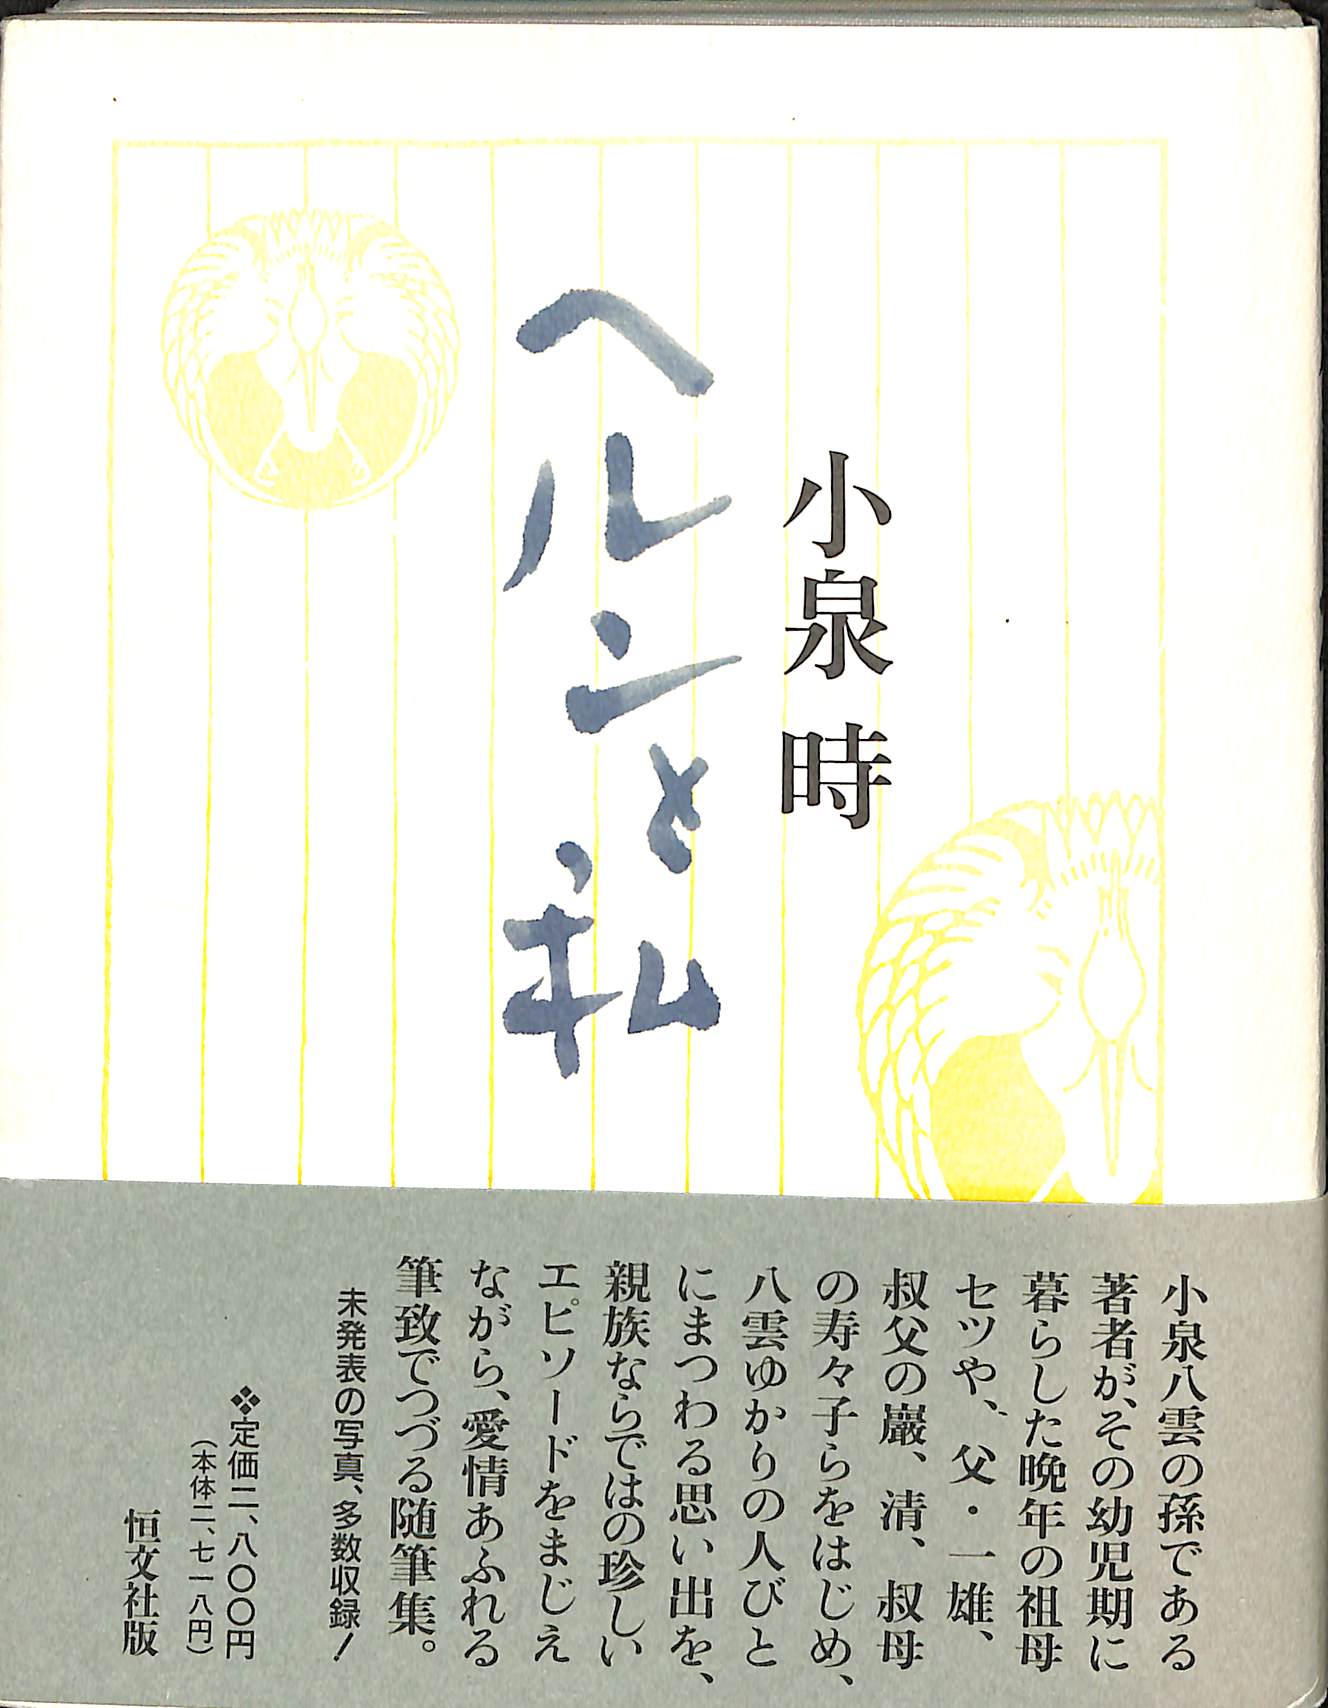 小泉 時
ヘルンと私
小泉八雲の孫である
著者が、その幼児期に
暮らした晩年の祖母
セツや、父・一雄、
叔父の巌、清、叔母
の寿々子らをはじめ、
八雲ゆかりの人びと
にまつわる思い出を、
親族ならではの珍しい
エピソードをまじえ
ながら、愛情あふれる
筆致でつづる随筆集。
未発表の写真、多数収録!
❖定価二、八〇〇円
(本体二、七一八円)
恒文社版